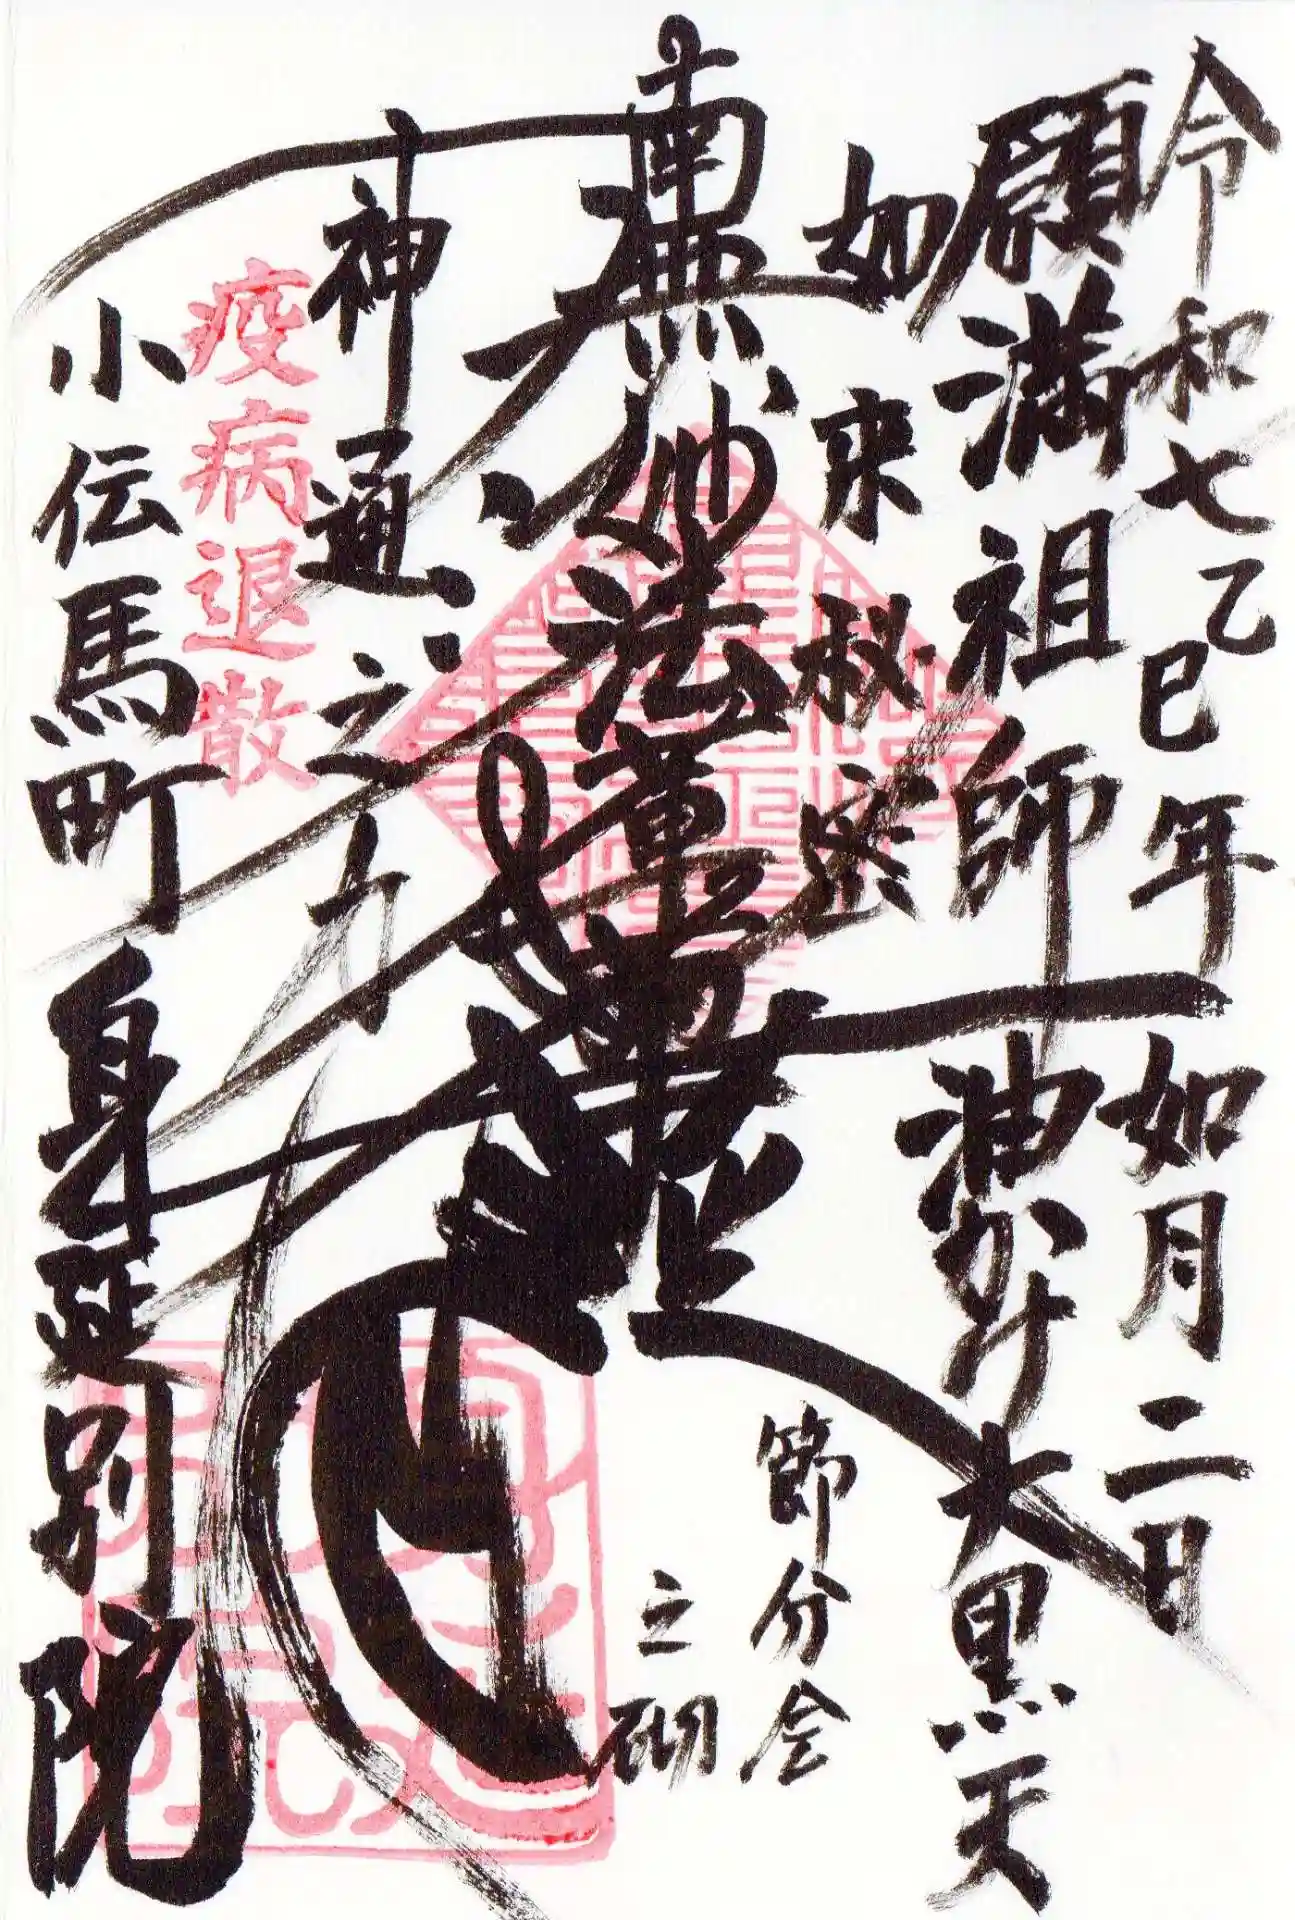 令和七乙巳年 如月二日
願満祖師 油かけ大黒天
如来秘密
節分会
之砌
南無妙法蓮華経
神通之力
疫病退散
小伝馬町 身延別院